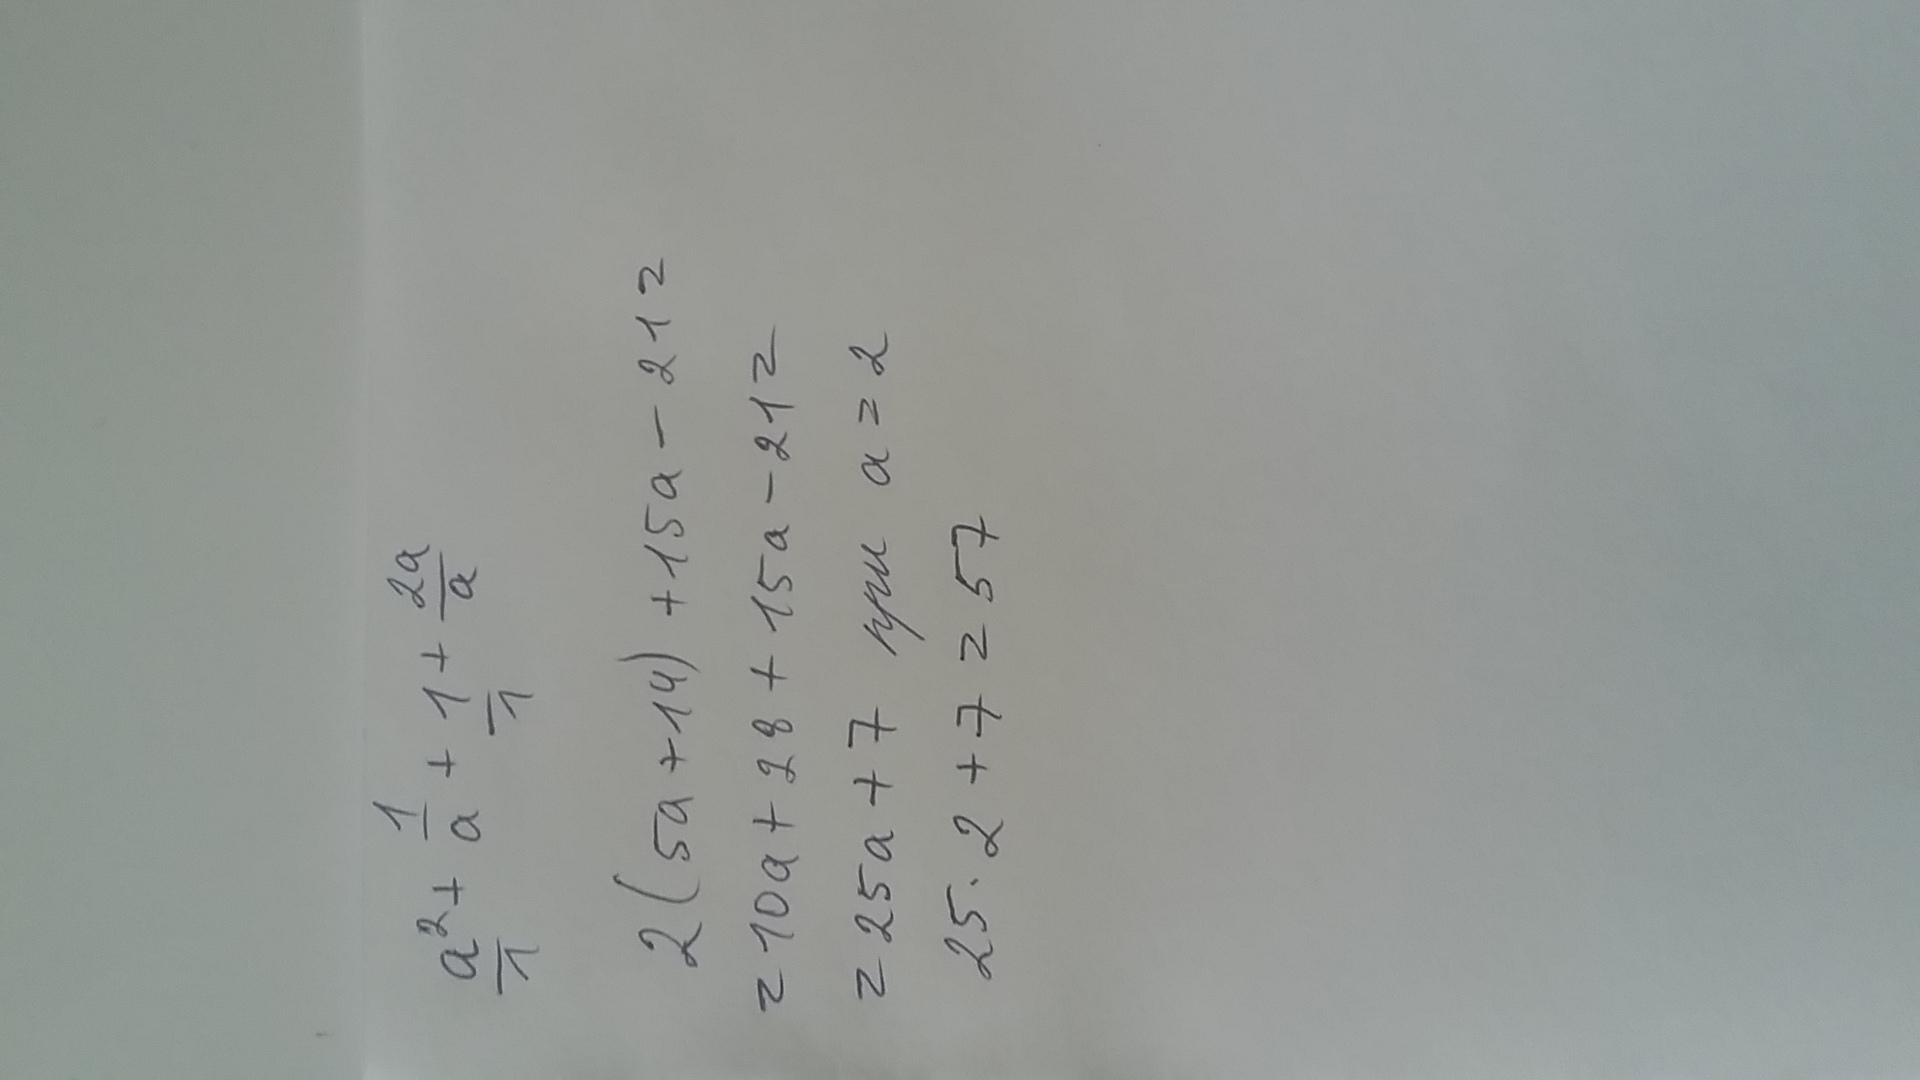 a²/1 + 1/a + 1/1 + 2a/a
2(5a+14)+15a-21=
=10a+28+15a-21=
=25a+7 при a=2
25·2+7=57